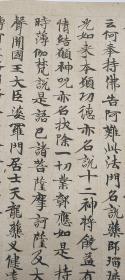 云何奉持佛告阿難此法門名說藥師瑠璃
光如来本願功德亦名說十二神將饒益有
情結願神呪亦名拔除一切業鄣應如是持
時薄伽梵說是語已諸菩薩摩訶薩及大
聲聞國王大臣婆羅門居士天龍藥叉健達